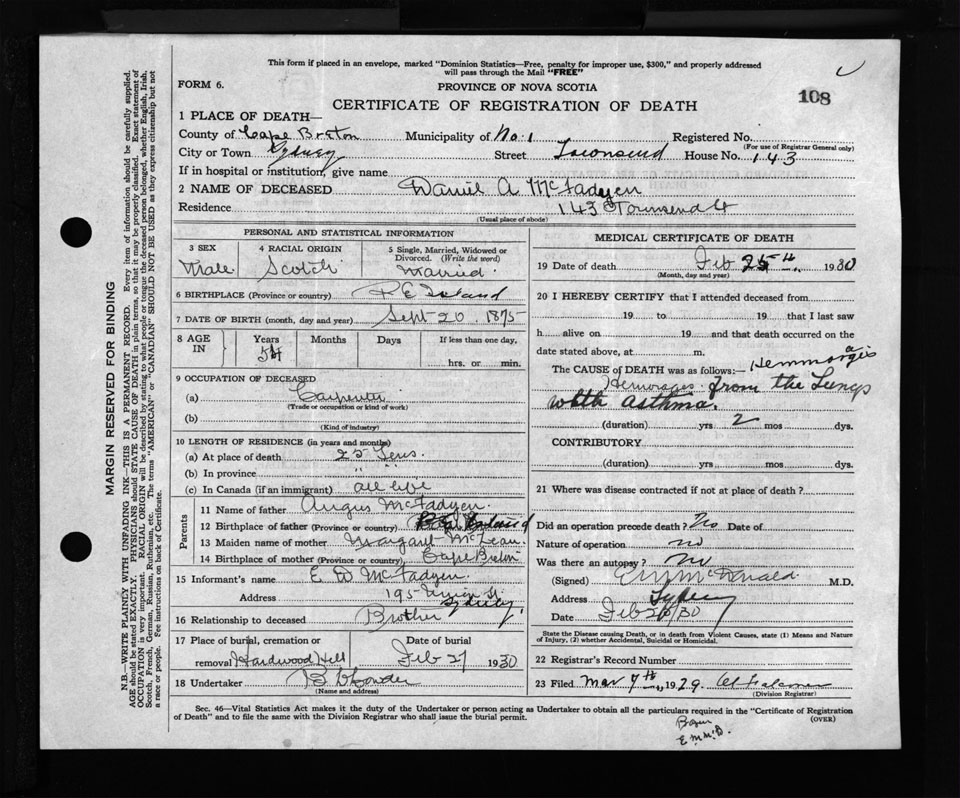 This form if placed in an envelope, marked "Dominion Statistics—Free, penalty for improper use, $300," and properly addressed
will pass through the Mail "FREE"
FORM 6.
PROVINCE OF NOVA SCOTIA
108
CERTIFICATE OF REGISTRATION OF DEATH
1 PLACE OF DEATH—
County of Cape Breton Municipality of No. 1 Registered No.
(For use of Registrar General only)
City or Town Sydney Street Townsend House No. 143
If in hospital or institution, give name
2 NAME OF DECEASED Daniel A McFadyen
Residence 143 Townsend St
(Usual place of abode)
PERSONAL AND STATISTICAL INFORMATION
3 SEX 4 RACIAL ORIGIN 5 Single, Married, Widowed or
Divorced. (Write the word)
Male Scotch Married
6 BIRTHPLACE (Province or country) P E Island
7 DATE OF BIRTH (month, day and year) Sept 20, 1875
8 AGE IN Years Months Days If less than one day,
54 hrs. or min.
9 OCCUPATION OF DECEASED
(a) Carpenter
(Trade or occupation or kind of work)
(b)
(Kind of industry)
10 LENGTH OF RESIDENCE (in years and months)
(a) At place of death 25 Years
(b) In province " "
(c) In Canada (if an immigrant) all life
Parents
11 Name of father Angus McFadyen
12 Birthplace of father (Province or country) P.E. Island
13 Maiden name of mother Margaret McLean
14 Birthplace of mother (Province or country) Cape Breton
15 Informant's name E D McFadyen
Address 195 St Sydney
16 Relationship to deceased Brother
17 Place of burial, cremation or removal Hardwood Hill
Date of burial Feb 27 1930
18 Undertaker
(Name and address)
MEDICAL CERTIFICATE OF DEATH
19 Date of death Feb 25th, 1930
(Month, day and year)
20 I HEREBY CERTIFY that I attended deceased from
19 to 19 that I last saw
h alive on 19 and that death occurred on the
date stated above, at m.
The CAUSE of DEATH was as follows:— Hemmorages
Hemorages from the Lungs
with asthma.
(duration) yrs 2 mos dys.
CONTRIBUTORY
(duration) yrs mos dys.
21 Where was disease contracted if not at place of death?
Did an operation precede death? No Date of
Nature of operation no
Was there an autopsy? No
(Signed) McDonald M.D.
Address Sydney
Date Feb 26/30
State the Disease causing Death, or in death from Violent Causes, state (1) Means and Nature
of Injury, (2) whether Accidental, Suicidal or Homicidal.
22 Registrar's Record Number
23 Filed Mar 7th, 1929
(Division Registrar)
Sec. 46—Vital Statistics Act makes it the duty of the Undertaker or person acting as Undertaker to obtain all the particulars required in the "Certificate of Registration
of Death" and to file the same with the Division Registrar who shall issue the burial permit.
(OVER)
E.M.McD.
MARGIN RESERVED FOR BINDING
N.B.—WRITE PLAINLY WITH UNFADING INK—THIS IS A PERMANENT RECORD. Every item of information should be carefully supplied.
AGE should be stated EXACTLY. PHYSICIANS should STATE CAUSE OF DEATH in plain terms, so that it may be properly classified. Exact statement of
OCCUPATION is very important. RACIAL ORIGIN will be described by stating to what people or tongue the deceased person belonged, whether English, Irish,
Scotch, French, German, Russian, Ruthenian, etc. The terms "AMERICAN" or "CANADIAN" SHOULD NOT BE USED as they express citizenship but not
a race or people. Fee instructions on back of Certificate.